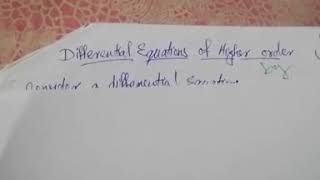 Differential Equations of Higher order
by
Consider a differential